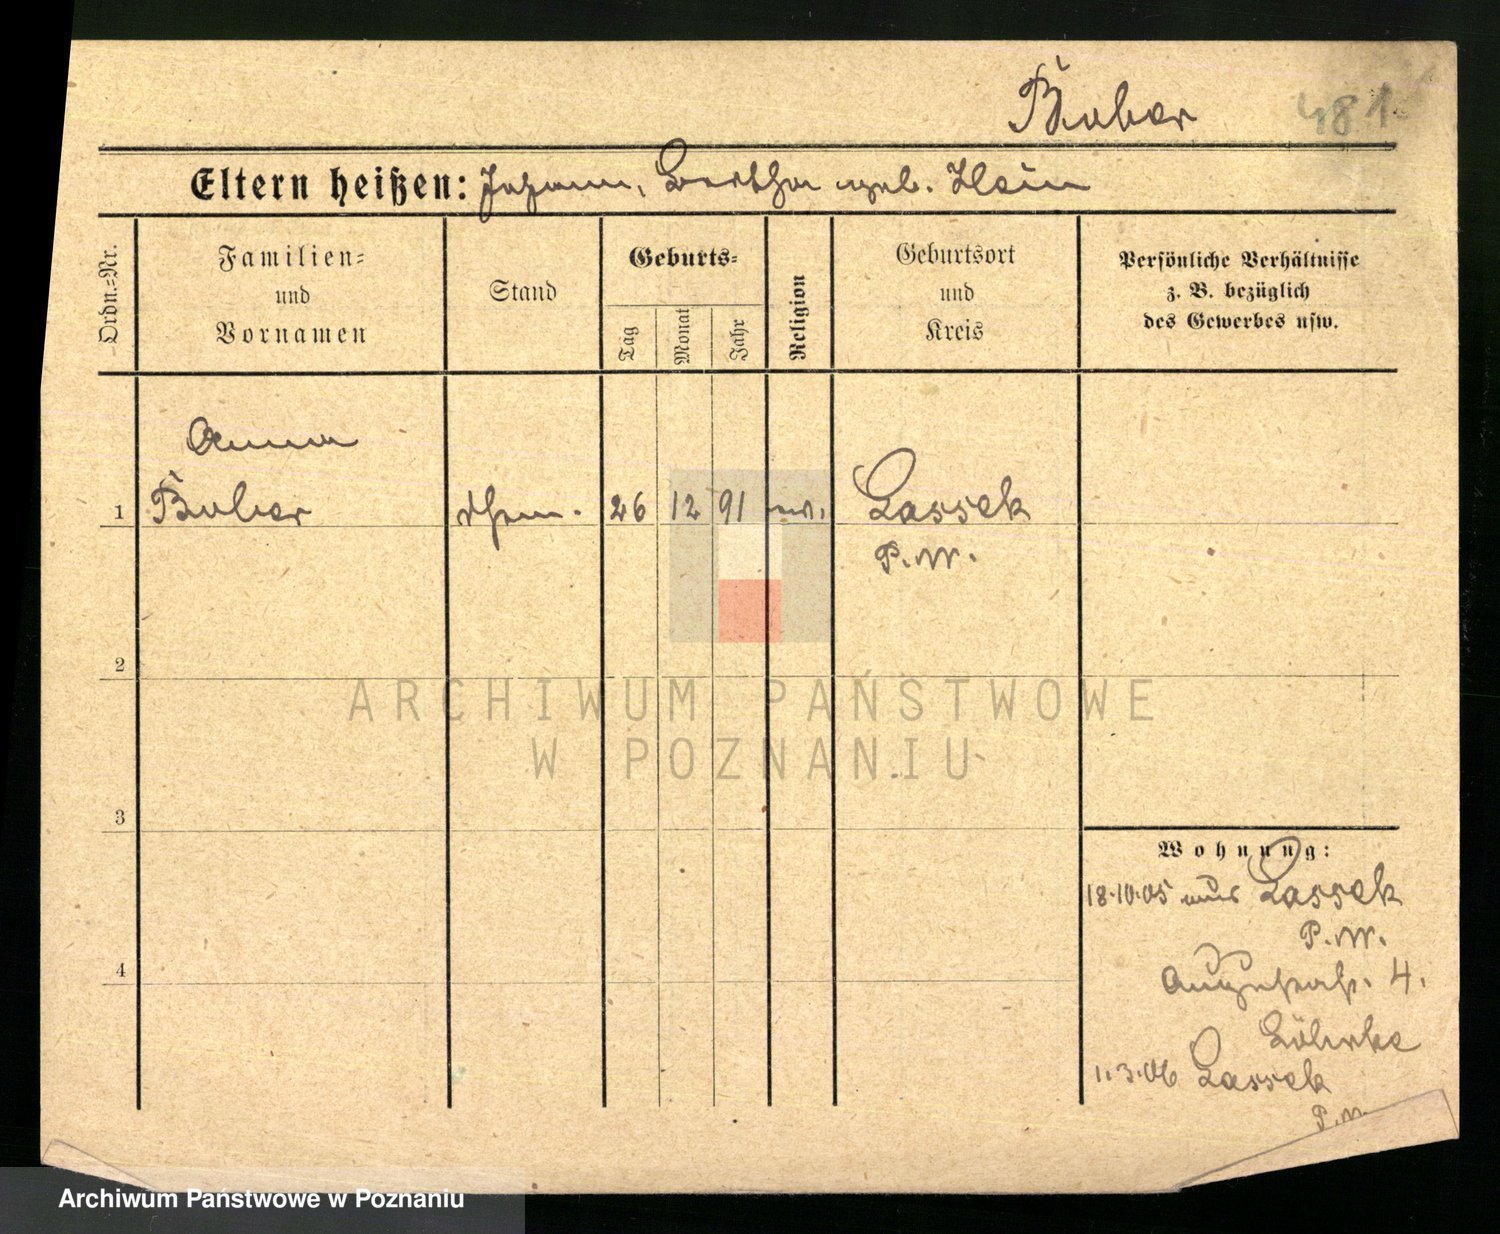 Buber 481
Eltern heißen: Johann, Bertha geb. Klein
Ordn.-Nr.
Familien-
und
Vornamen
Stand
Geburts-
Tag
Monat
Jahr
Religion
Geburtsort
und
Kreis
Persönliche Verhältnisse
z. B. bezüglich
des Gewerbes usw.
Anna
1 Buber 26 12 91 ev. Lassek
P. W.
2
ARCHIWUM PAŃSTWOWE
W POZNANIU
3
Wohnung:
18.10.05 aus Lassek
P. W.
4
Augustastr. 4.
1.3.06 Lassek
P. W.
Archiwum Państwowe w Poznaniu